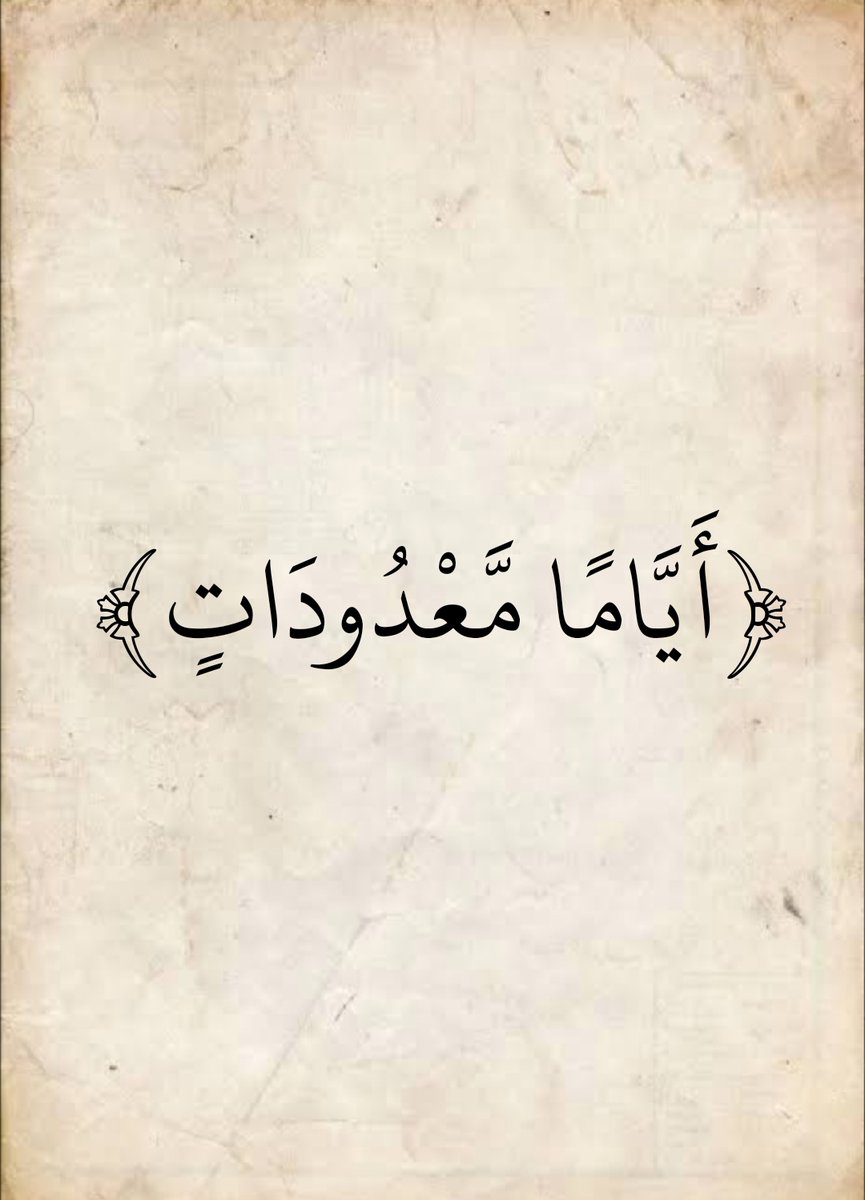 ﴿أَيَّامًا مَّعْدُودَاتٍ﴾